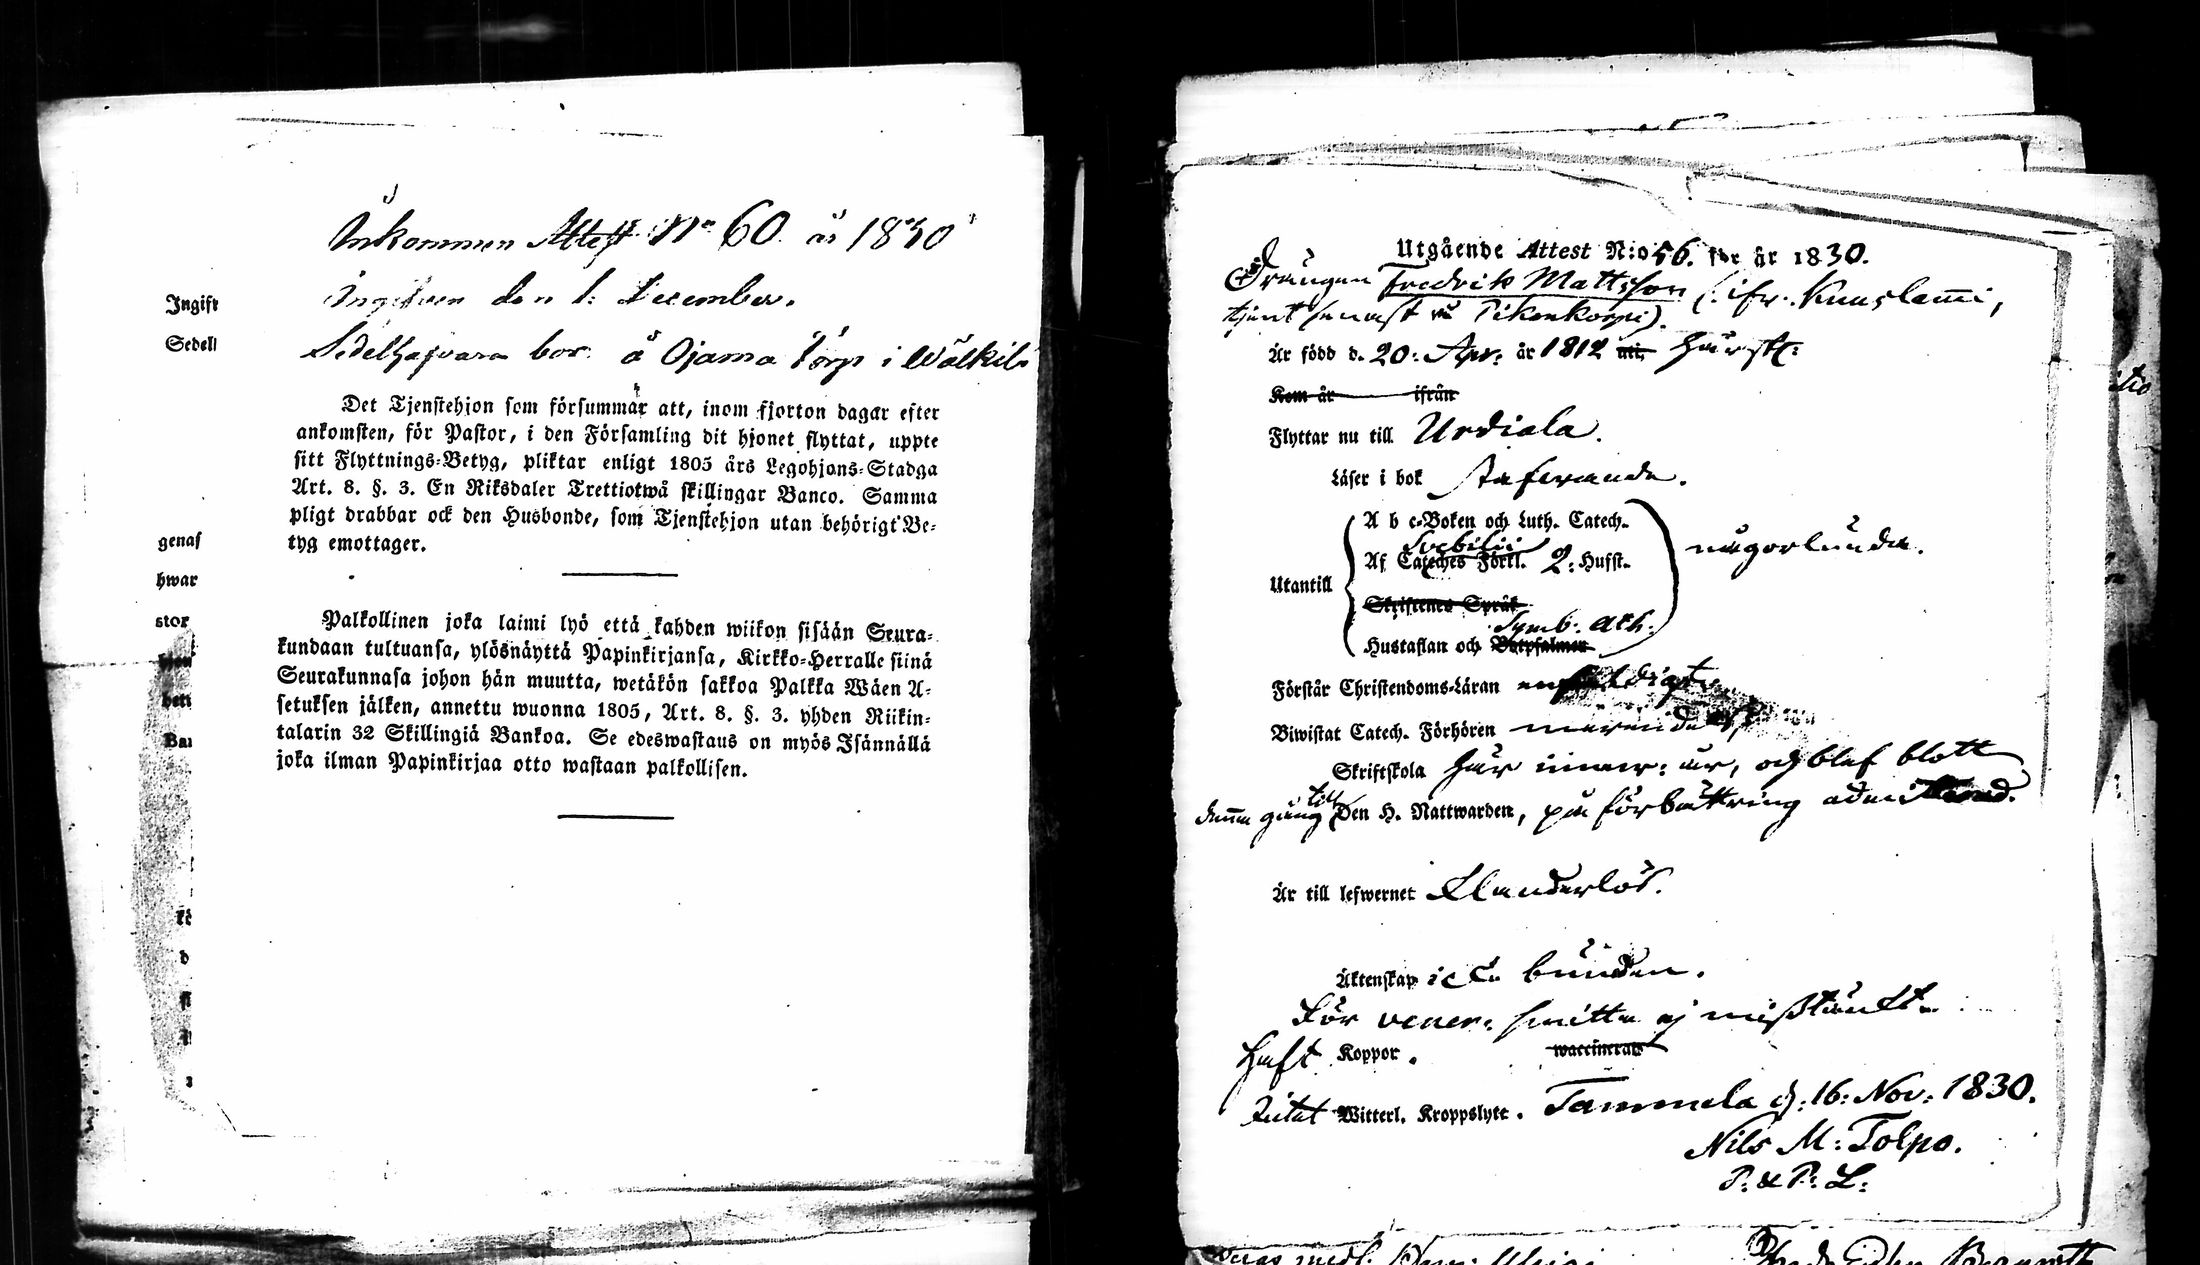 Inkommen Attest No 60. år 1830
Ingifven den 1: December.
Sedelhafvaren bor å Ojama torp i Wälkilä
Ingift
Sedell
Det Tjenstehjon som försummar att, inom fjorton dagar efter
ankomsten, för Pastor, i den Församling dit hjonet flyttat, uppte
sitt Flyttnings-Betyg, pliktar enligt 1805 års Legohjons-Stadga
Art. 8. §. 3. En Riksdaler Trettiotwå skillingar Banco. Samma
pligt drabbar ock den Husbonde, som Tjenstehjon utan behörigt Be-
tyg emottager.
genaf
hwar
stor
Palkollinen joka laimi lyö että kahden wiikon sisään Seura-
kundaan tultuansa, ylösnäyttä Papinkirjansa, Kirkko-Herralle siinä
Seurakunnasa johon hän muutta, wetäkön sakkoa Palkka Wäen A-
setuksen jälken, annettu wuonna 1805, Art. 8. §. 3. yhden Riikin-
talarin 32 Skillingiä Bankoa. Se edeswastaus on myös Isännällä
joka ilman Papinkirjaa otto wastaan palkollisen.
Utgående Attest N:o 56. för år 1830.
Drängen Fredrik Mattsson (: ifr. Kuuslammi,
tjent senast på Pikonkorpi).
Är född d. 20: Apr: år 1812 uti, härst:
Kom år ifrån
Flyttar nu till Urdiala.
Läser i bok stafvande.
A b c-Boken och Luth. Catech.
Svebilii
Af Cateches Förkl. 2: Hufst.
någorlunda.
Utantill
Skriftenes Språk
Symb: Ath:
Hustaflan och Botpsalmen
Förstår Christendoms-Läran enfaldigt
Biwistat Catech. Förhören
Skriftskola här innev: år, och blef blott
denna gång till Den H. Nattwarden, på förbättring admitterad.
Är till lefwernet Klanderlös.
Äktenskap icke bunden.
För vener: smitta ej mißtänkt.
Haft Koppor. waccinerad
Witterl. Kroppslyte. Tammela d: 16: Nov: 1830.
Nils M: Tolpo.
P: & P: L: